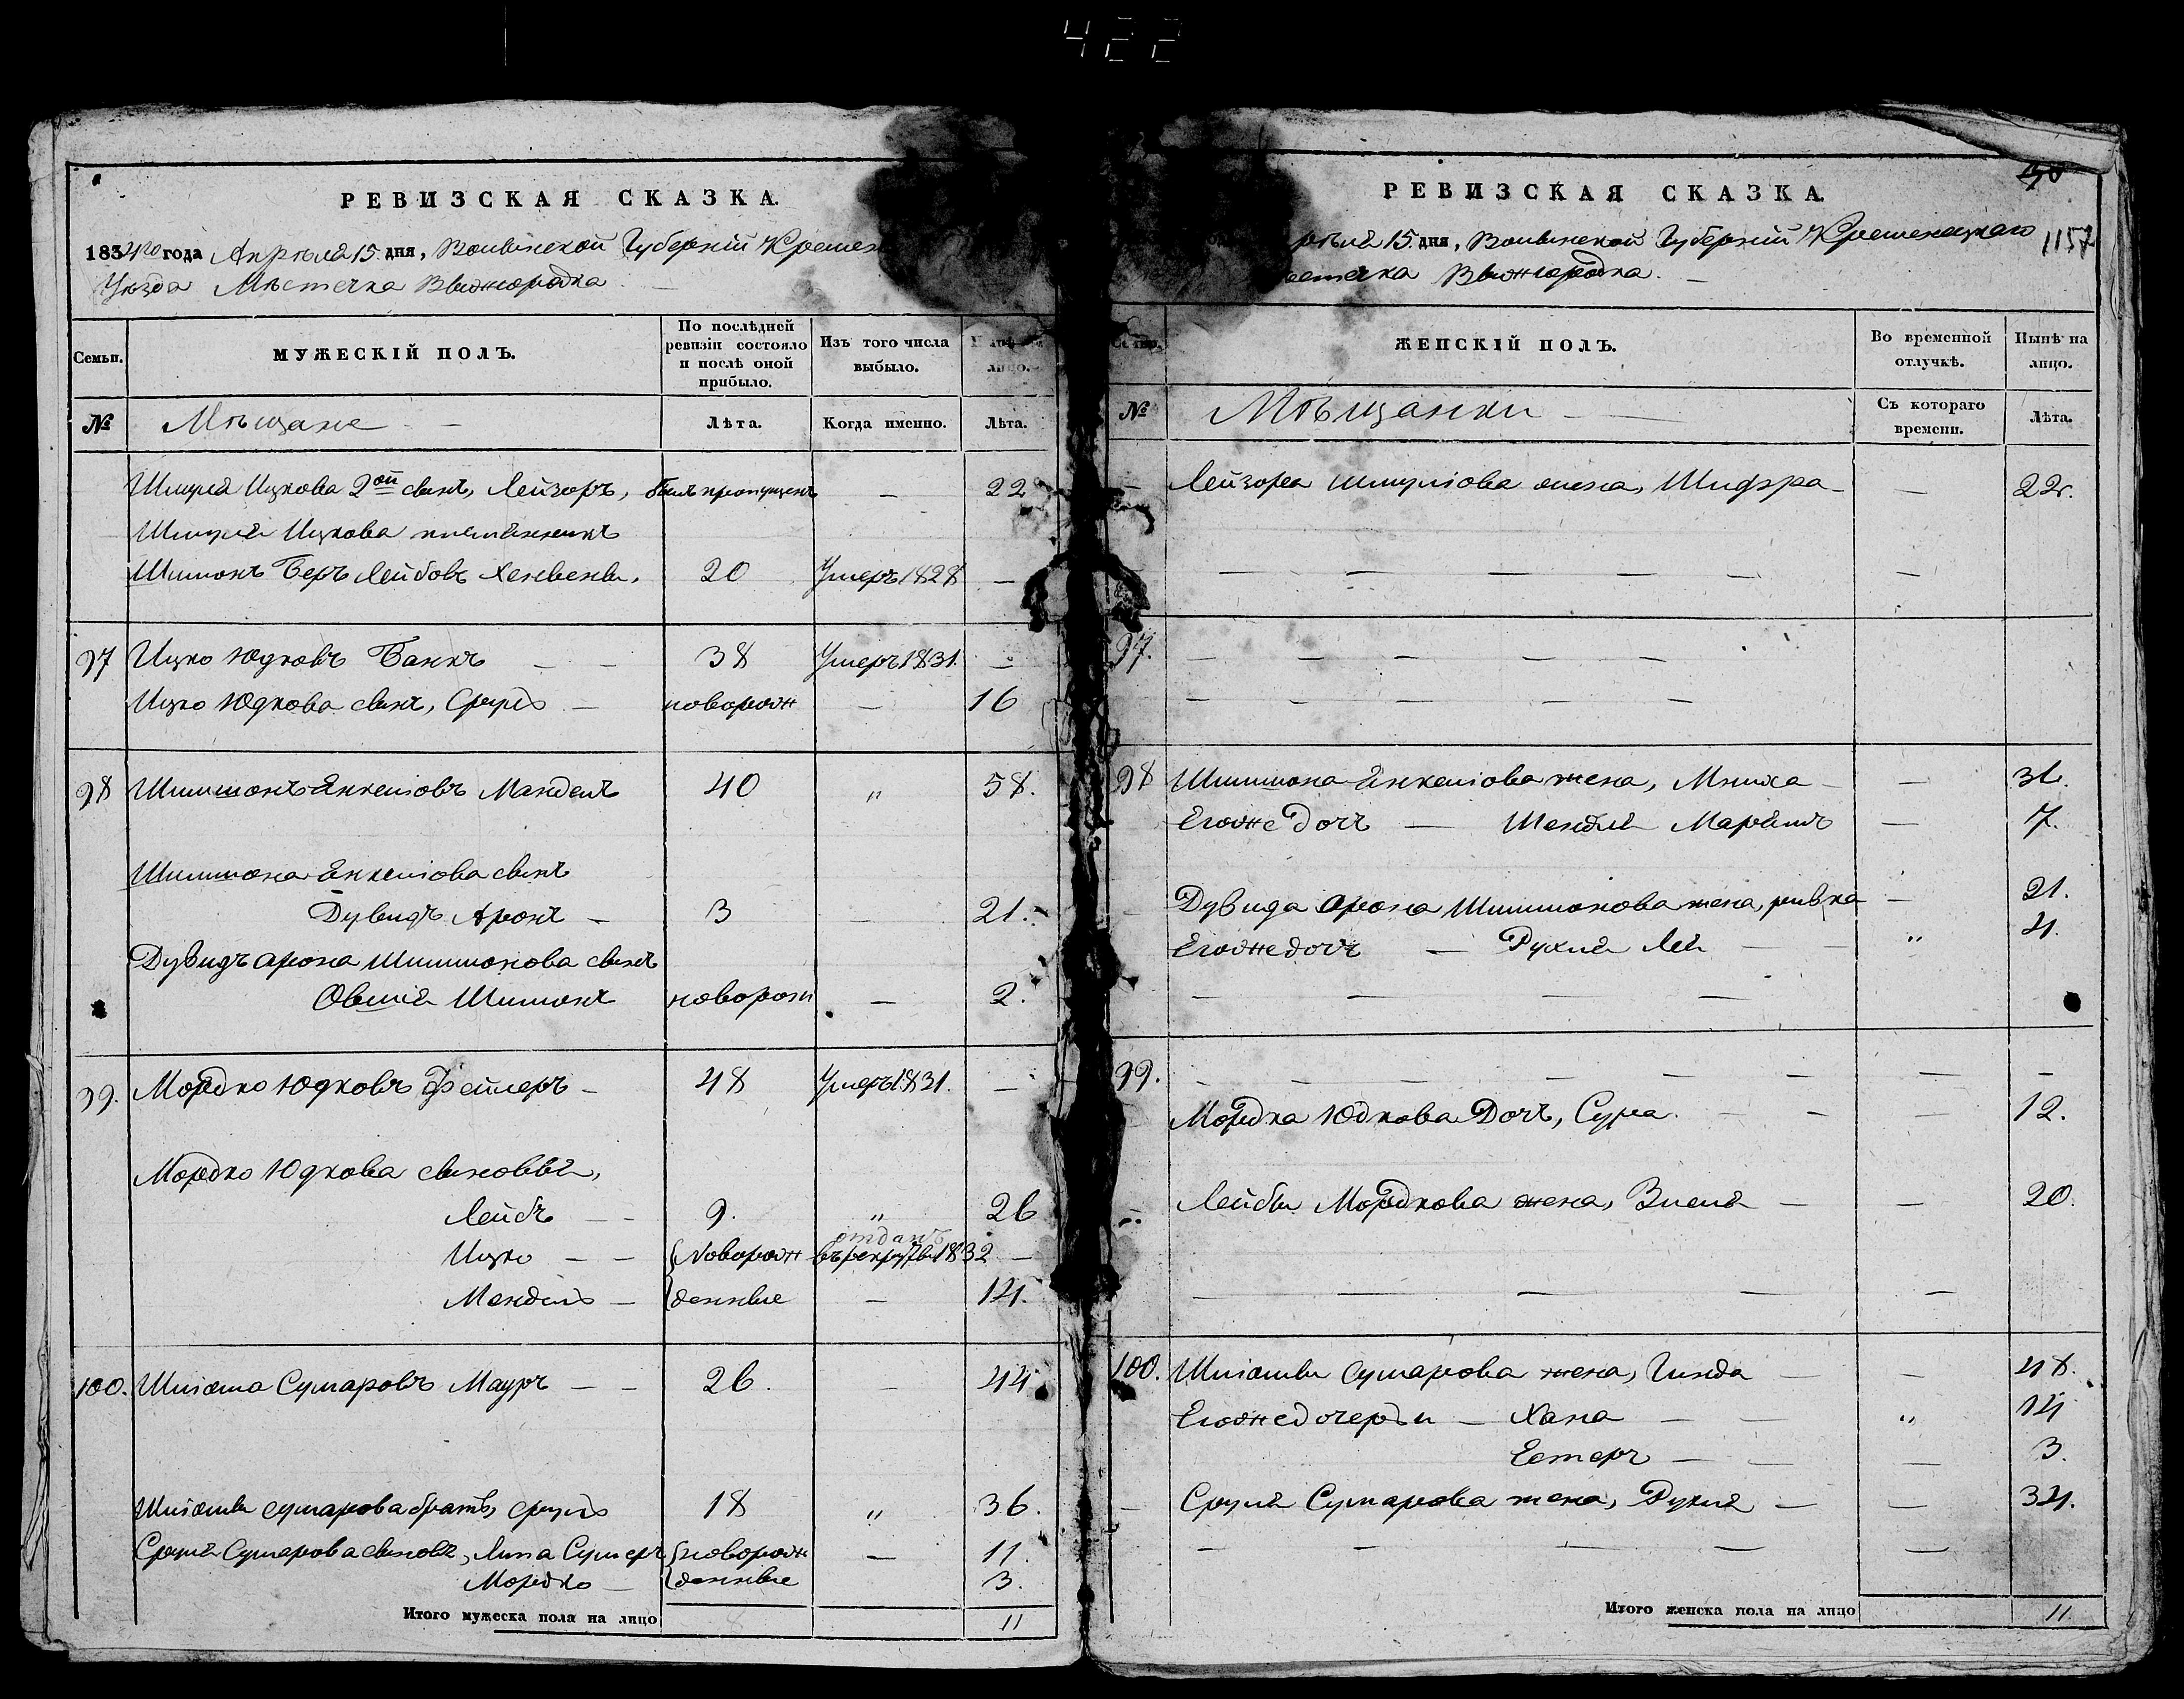 422
РЕВИЗСКАЯ СКАЗКА.
1834го года Апрѣля 15 дня, Волынской Губерніи Кремен
Уѣзда Мѣстечка Выжгородка
Семьи.
МУЖЕСКІЙ ПОЛЪ.
По послѣдней ревизіи состояло и послѣ оной прибыло.
Изъ того числа выбыло.
лицо.
№
Мѣщане
Лѣта.
Когда именно.
Лѣта.
Шмуля Ицкова 2ой сынъ, Лейзоръ, былъ пропущенъ — 22
Шмуля Ицкова племянникъ
Шимонъ Беръ Лейбовъ 20 Умеръ 1828 —
97 Ицко Юдковъ Банкъ — — 38 Умеръ 1831. —
Ицко Юдкова сынъ, Сруль — новорож — 16
98 Шимшонъ Енкелiовъ Мандель 40 " 58.
Шимшона Енкелiова сынъ
Дувидъ Аронъ — 3 — 21.
Дувидъ арона Шимшонова сынъ
Овшiя Шимонъ новорож — 2.
99. Мордко Юдковъ Фейлеръ — 48 Умеръ 1831. —
Мордко Юдкова сыновья,
Лейбъ — — 9. " 26
отданъ
Ицко — — Новорож въ рекруты 1832 —
Мендель — денные — 14.
100. Шлiома Сумаровъ Мауръ — — 26. — 44
Шлiомы Сумарова братъ, Сруль 18 " 36.
Сруля Сумарова сыновья, Липа Сумеръ новорож — 11.
Мордко — денные 3.
Итого мужеска пола на лицо 11
РЕВИЗСКАЯ СКАЗКА.
150
1157
рѣля 15 дня, Волынской Губерніи Кременецкаго
естечка Выжгородка. —
ЖЕНСКІЙ ПОЛЪ.
Во временной отлучкѣ.
Нынѣ на лицо.
№
Мѣщанки —
Съ котораго времени.
Лѣта.
— Лейзора Шмулiова жена, Шифра — — 22.
— — — — — — —
97. — — — — —
— — — — —
98 Шимшона Енкелiова жена, Мниха — — 36.
Егожедочъ — Шендля Марьямъ — 7.
Дувида Арона Шимшонова жена, ривка — 21.
Егожедочъ — Рухля Лея — " 4.
— — — —
99. — — — — — — — —
Мордка Юдкова Дочъ, Сура. — — — 12.
Лейбы Мордкова жена, Злата — — 20.
— — — — —
100. Шлiомы Сумарова жена, Гинда — — 48.
Егожедочери — Хана — — " 14
Естеръ — — — 3.
— Сруля Сумарова жена, Рухля — — 34.
— — — — —
Итого женска пола на лицо 11